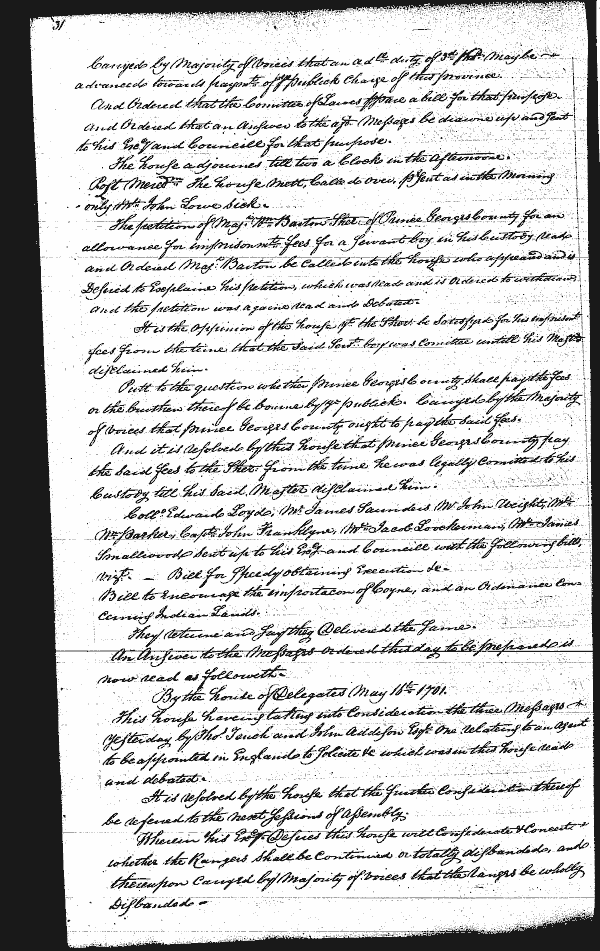 31
Carryed by Majority of Voices that an ad.ce duty of 3d p hhd. May be
advanced towards paym.t of ye publick Charge of this province.
And Ordered that the Comittee of Lawes ppare a bill for that purpose.
And Ordered that an Answer to the afd. Messages be drawne up and sent
to his Exc.y and Councill for that purpose.
The house adjournes till two a Clock in the Afternoone.
Post Merid.m The house Mett, Called over, p.sent as in the Morning
only Mr. John Lowe sick.
The petition of Maj.r Wm. Barton Sher. of Prince Georges County for an
allowance for imprisonm.t fees for a Servant boy in his Custody read
and Ordered Maj.r Barton be Called into the house who appeared and is
Desired to Explaine his petition, which was read and is ordered to withdraw
and the petition was againe read and Debated.
It is the Oppinion of the house yt the Sher. be Satisfyed for his imprisonmt
fees from the time that the said Servt. boy was Comitted untill his Master
disclaimed him.
Putt to the question whether prince Georges County shall pay the fees
or the burthen thereof be bourne by ye publick. Carryed by the Majority
of Voices that prince Georges County ought to pay the said fees.
And it is resolved by this house that prince Georges County pay
the said fees to the Sher. from the time he was legally Comitted to his
Custody till his said Master disclaimed him.
Coll.o Edward Loyd, Mr. James Saunders Mr John Weight, Mr.
Wm. Barker, Capt. John Franklyn, Mr. Jacob Loockerman, Mr. James
Smallwood sent up to his Exc.y and Councill with the following bills,
viz.t — Bill for speedy obtaining Execution &c.
Bill to Encourage the importacon of Coyne, and an Ordinance Con-
cerning Indian Lands.
They returne and say they Delivered the same.
An Answer to the Messages ordered this day to be prepared is
now read as followeth.
By the house of Delegates May 16th 1701.
This house haveing taking into Consideration the three Messages
Yesterday by Tho.s Tench and John Addison Esq.rs One relating to an agent
to be appointed in England to Solicite &c which was in this house read
and debated.
It is resolved by the house that the further Consideration thereof
be referred to the next Sessions of Assembly.
Wherein his Exc.y Desires this house will Considerate & Concert
whether the Rangers shall be Continued or totally disbanded, and
thereupon Carryed by Majority of Voices that the rangers be wholly
Disbanded.